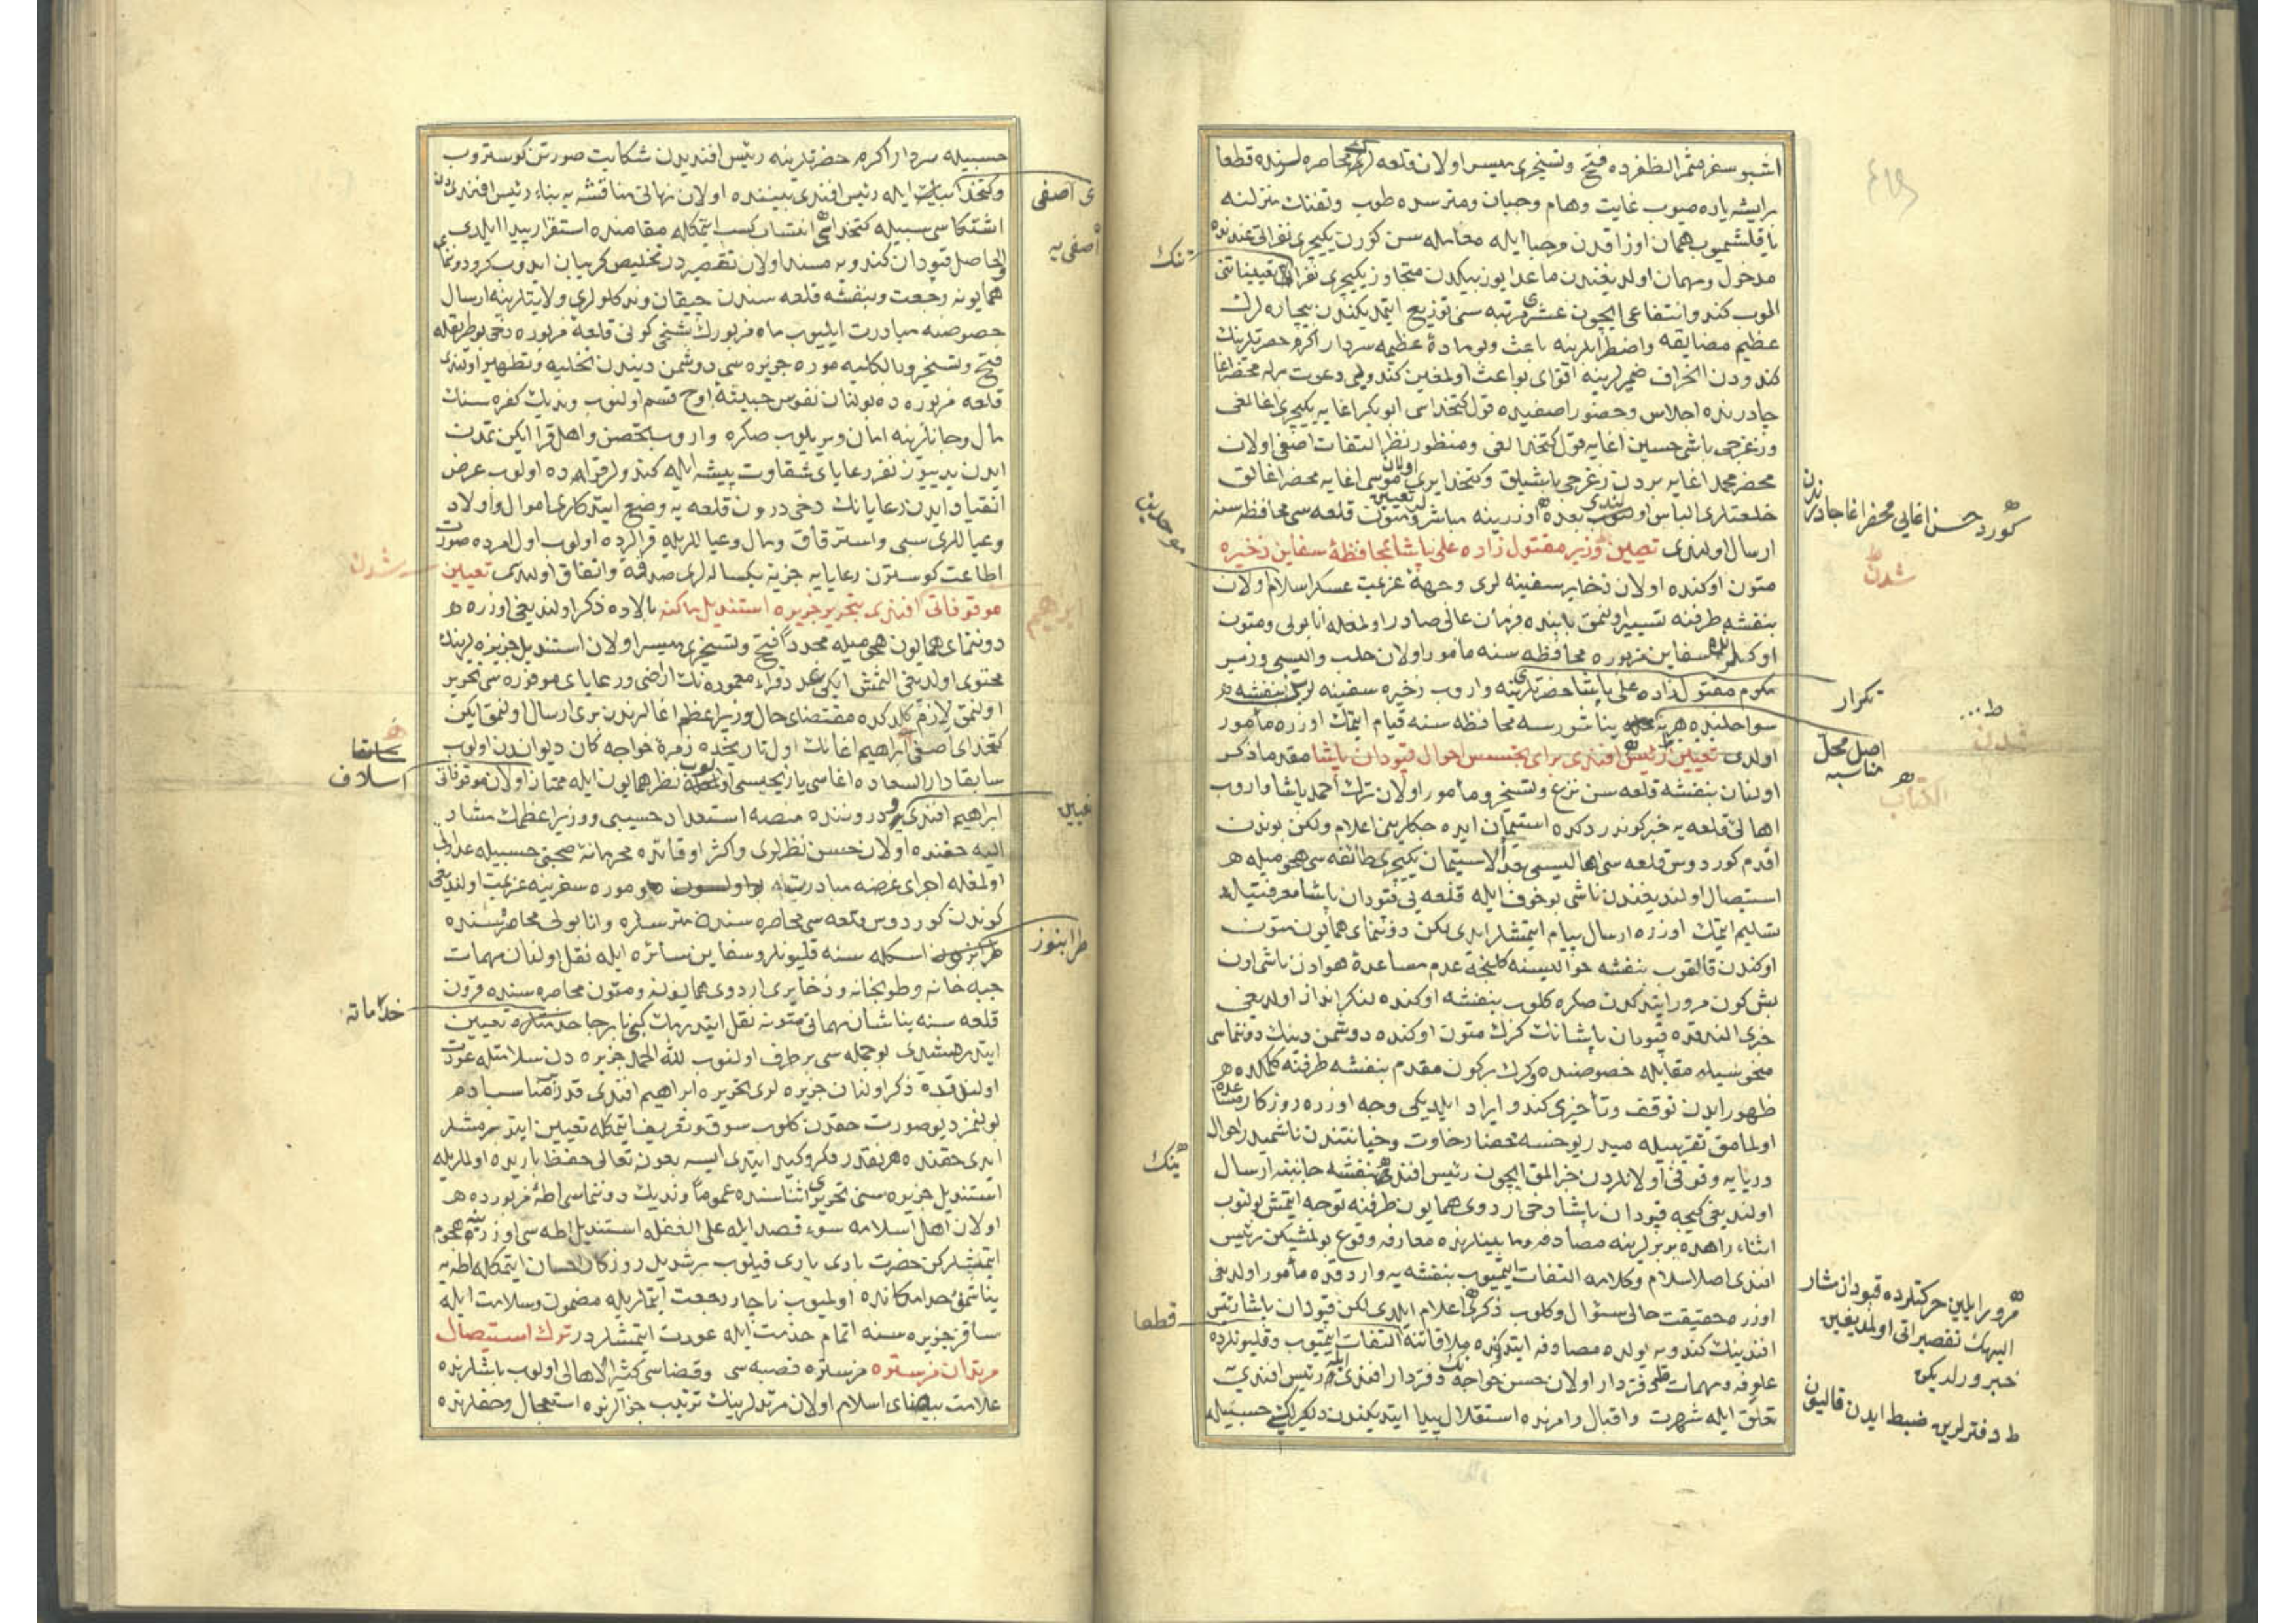 اشبو سفر مثمر الظفرده فتح وتسخیری میسر اولان قلعه لرک محاصره لرنده قطعا
برایشه یاره میوب غایت وهام وجبان ومترسده طوب وتفنك منزلنه
یاقلشمیوب همان اوزاقدن مرحبا ایله معامله سن کورن یکیچری نفراتی عندنده
مدخول ومهمان اولدیغندن ماعدا یوز بیکدن متجاوز یکیچری نفراتی تعییناتنی
الوب کندو انتفاعی ایچون عشری مرتبه سنی توزیع ایتدیکندن بیچاره لرك
عظیم مضایقه واضطرابلرینه باعث وبو ماده عظیمه سردار اکرم حضرتلرینك
کندودن انحراف ضمیرلرینه اقوای بواعث اولمغین کندویی دعوت برله محضر اغا
چادرنده اجلاس وحضور اصفیده قول کتخداسی ابوبکر اغایه یکیچری اغالغی
وزغرجی باشی حسین اغایه قول کتخدالغی ومنظور نظر التفات اصفی اولان
محضر محمد اغایه بردن زغرجی باشیلق وکتخدایری اولان موسی اغایه محضر اغالق
خلعتلری الباس اولندی بعده اوزرینه مباشر تعیین ومتون قلعه سی محافظه سنه
ارسال اولندی تعیین وزیر مقتول زاده علی پاشا بمحافظه سفاین ذخیره
متون اوکنده اولان ذخایر سفینه لری وجهه عزیمت عسکر اسلام اولان
بنفشه طرفنه تسییر اولنمق بابنده فرمان عالی صادر اولمغله انابولی ومتون
اوکلرنده سفاین مزبوره محافظه سنه مأمور اولان حلب والیسی وزیر
مکرم مقتول زاده علی پاشا حضرتلرینه واروب ذخیره سفینه لرین بنفشه
سواحلنده هر نه محله یناشورسه محافظه سنه قیام ایتمك اوزره مأمور
اولدی تعیین رئیس افندی برای تجسس احوال قپودان پاشا مقدما ذکر
اولنان بنفشه قلعه سن نزع وتسخیره مأمور اولان ترك احمد پاشا واروب
اهالی قلعه یه خبر کوندردکده استیمان ایده جکلرینی اعلام ولکن بوندن
اقدم کوردوس قلعه سی اهالیسی بعد الاستیمان یکیچری طائفه سی هجومیله
استیصال اولندیغندن ناشی بو خوف ایله قلعه یی قپودان پاشا معرفتیله
تسلیم ایتمك اوزره ارسال پیام ایتمشلر ایدی لکن دونمای همایون متون
اوکندن قالقوب بنفشه حوالیسنه کلنجه عدم مساعده هوادن ناشی اون
بش کون مرور ایتدکدن صکره کلوب بنفشه اوکنده لنکر انداز اولدیغی
خبری النده قپودان پاشانك کرك متون اوکنده دوشمن دینك دونماسی
مقابله خصوصنده وکرك برکون مقدم بنفشه طرفنه کلمکده
ظهور ایدن توقف وتأخیری کندو ایراد ایلدیکی وجه اوزره روزکار مساعد
اولمامق تقریبیله میدر یوخسه محضا رخاوت وخیانتندن ناشمیدر احوال
دریایه وقوفی اولانلردن خبر المق ایچون رئیس افندی بنفشه جانبنه ارسال
اولندیغی کیجه قپودان پاشا دخی اردوی همایون طرفنه توجه ایتمش بولنوب
اثناء راهده بربرلرینه مصادفه ومابینلرنده معارفه وقوع بولمشیکن رئیس
افندی اصلا سلام وکلامه التفات ایتمیوب بنفشه یه واردقده مأمور اولدیغی
اوزره حقیقت حالی سؤال وکلوب ذکری اعلام ایلدی لکن قپودان پاشا رئیس
افندینك کندویه یولده مصادفه ایتدکده ملاقاتنه التفات ایتمیوب وقلیونلرده
علوفه ومهمات قلمی دفتردار اولان حسن خواجه دفتردار افندی رئیس افندی یه
تعلق ایله شهرت واقبال وامرنده استقلال پیدا ایتدیکندن دلکیرلکی حسبیله
تنك
موحدین
ینك
قطعا
کورد حسن اغایی محضر اغا چادرندن
شدن
تکرار
اصل محل مناسبه
ط...
شدن
الکتاب
مرور ایلین حرکتلرده قپودان مشار
الیهك تقصیراتی اولمدیغین
خبر ویرلدیکی
ط دفترلرین ضبط ایدن قالیون
حسبیله سردار اکرم حضرتلرینه رئیس افندیدن شکایت صورتن کوستروب
وکتخدا بك ایله رئیس افندی بیننده اولان نهانی مناقشه یه بناء رئیس افندیدن
اشتکاسی سببیله کتخدایه انتساب کسب ایتمکله مقامنده استقرار پیدا ایلدی
والحاصل قپودان کندویه مسند اولان تقصیردن تخلیص کریبان ایدوب کرو دونمای
همایونه رجعت وبنفشه قلعه سندن چیقان وندکلولری ولایتلرینه ارسال
خصوصنه مبادرت ایلیوب ماه مزبورك بشنجی کونی قلعه مزبوره دخی بو طریقله
فتح وتسخیر وبالکلیه موره جزیره سی دوشمن دیندن تخلیه وتطهیر اولندی
قلعه مزبوره ده بولنان نفوس خبیثه اوچ قسم اولنوب وندیك کفره سنك
مال وجانلرینه امان ویریلوب صکره واروب تحصن واهل قرا ایکن تمدن
ایدن یدییوز نفر رعایای شقاوت پیشه ایله کندولر قراده اولوب عرض
انقیاد ایدن رعایانك دخی درون قلعه یه وضع ایتدکلری اموال واولاد
وعیاللری سبی واسترقاق ومال وعیاللریله قرالرده اولوب اول امرده صورت
اطاعت کوسترن رعایایه جزیه یکساله لری صدقه واتفاق اولندی تعیین
موقوفاتی افندی بتحریر جزیره استندیل با کنه بالاده ذکر اولندیغی اوزره
دونمای همایون هجومیله مجددا فتح وتسخیری میسر اولان استندیل جزیره لرینك
محتوی اولدیغی التمش ایکی عدد قراء معموره نك اراضی ورعایای موفوره سی تحریر
اولنمق لازم کلدکده مقتضای حال وزیر اعظم اغالرندن بری ارسال اولنمق ایکن
کتخدای اصفی ابراهیم اغانك اول تاریخده زمره خواجه کان دیواندن اولوب
سابقا دار السعاده اغاسی یازیجیسی اولوب نظر همایون ایله ممتاز اولان موقوفاتی
ابراهیم افندی درونند منصه استعداد حسیبی ووزیر اعظمك مشار
الیه حقنده اولان حسن نظرلری واکثر اوقاتده محرمانه صحبتی حسبیله
اولمغله اجرای غرضه مبادرت موره سفرینه عزیمت اولندیغی
کوندن کوردوس قلعه سی محاصره سنده مترسلره وانابولی محاصره سنده
اسکله سنه قلیونلر وسفاین سائره ایله نقل اولنان مهمات
جبه خانه وطوبخانه وذخایری اردوی همایونه ومتون محاصره سنده قرون
قلعه سنه یناشان مهماتی متونه نقل ایتدیرمك کبی نابرجا خدمتلره تعیین
ایتدیرمشدی بو جمله سی برطرف اولنوب لله الحمد جزیره دن سلامتله عودت
اولندقده ذکر اولنان جزیره لری تحریره ابراهیم افندی قدر مناسب ادم
بولنمز دیو صورت حقدن کلوب سوق وتعریف ایتمکله تعیین ایتدیرمشلر
ایدی حقنده هر نقدر مکر وکید ایتدی ایسه بعون تعالی حفظ باریده اولملریله
استندیل جزیره سنی تحریری اثناسنده عموما وندیك دونماسی اطه مزبورده
اولان اهل اسلامه سوء قصد ایله علی الغفله استندیل اطه سی اوزرینه هجوم
ایتمشلرکن حضرت باری یاری قیلوب برشدید روزکار احسان ایتمکله اطه یه
یناشمق حد امکانده اولمیوب ناچار رجعت ایتملریله مضمون وسلامت ایله
ساقز جزیره سنه اتمام خدمت ایله عودت ایتمشلردر ترك استیصال
مرتدان مزستره مزستره قصبه سی وقضاسی کثیر الاهالی اولوب باشلرنده
علامت بیضای اسلام اولان مرتدلرینك ترتیب جزالرنده استعجال وحقلرنده
ی اصفی
اصفی یه
ابراهیم
شدن
سابقا
اسلاف
طرابنوز
خدماته